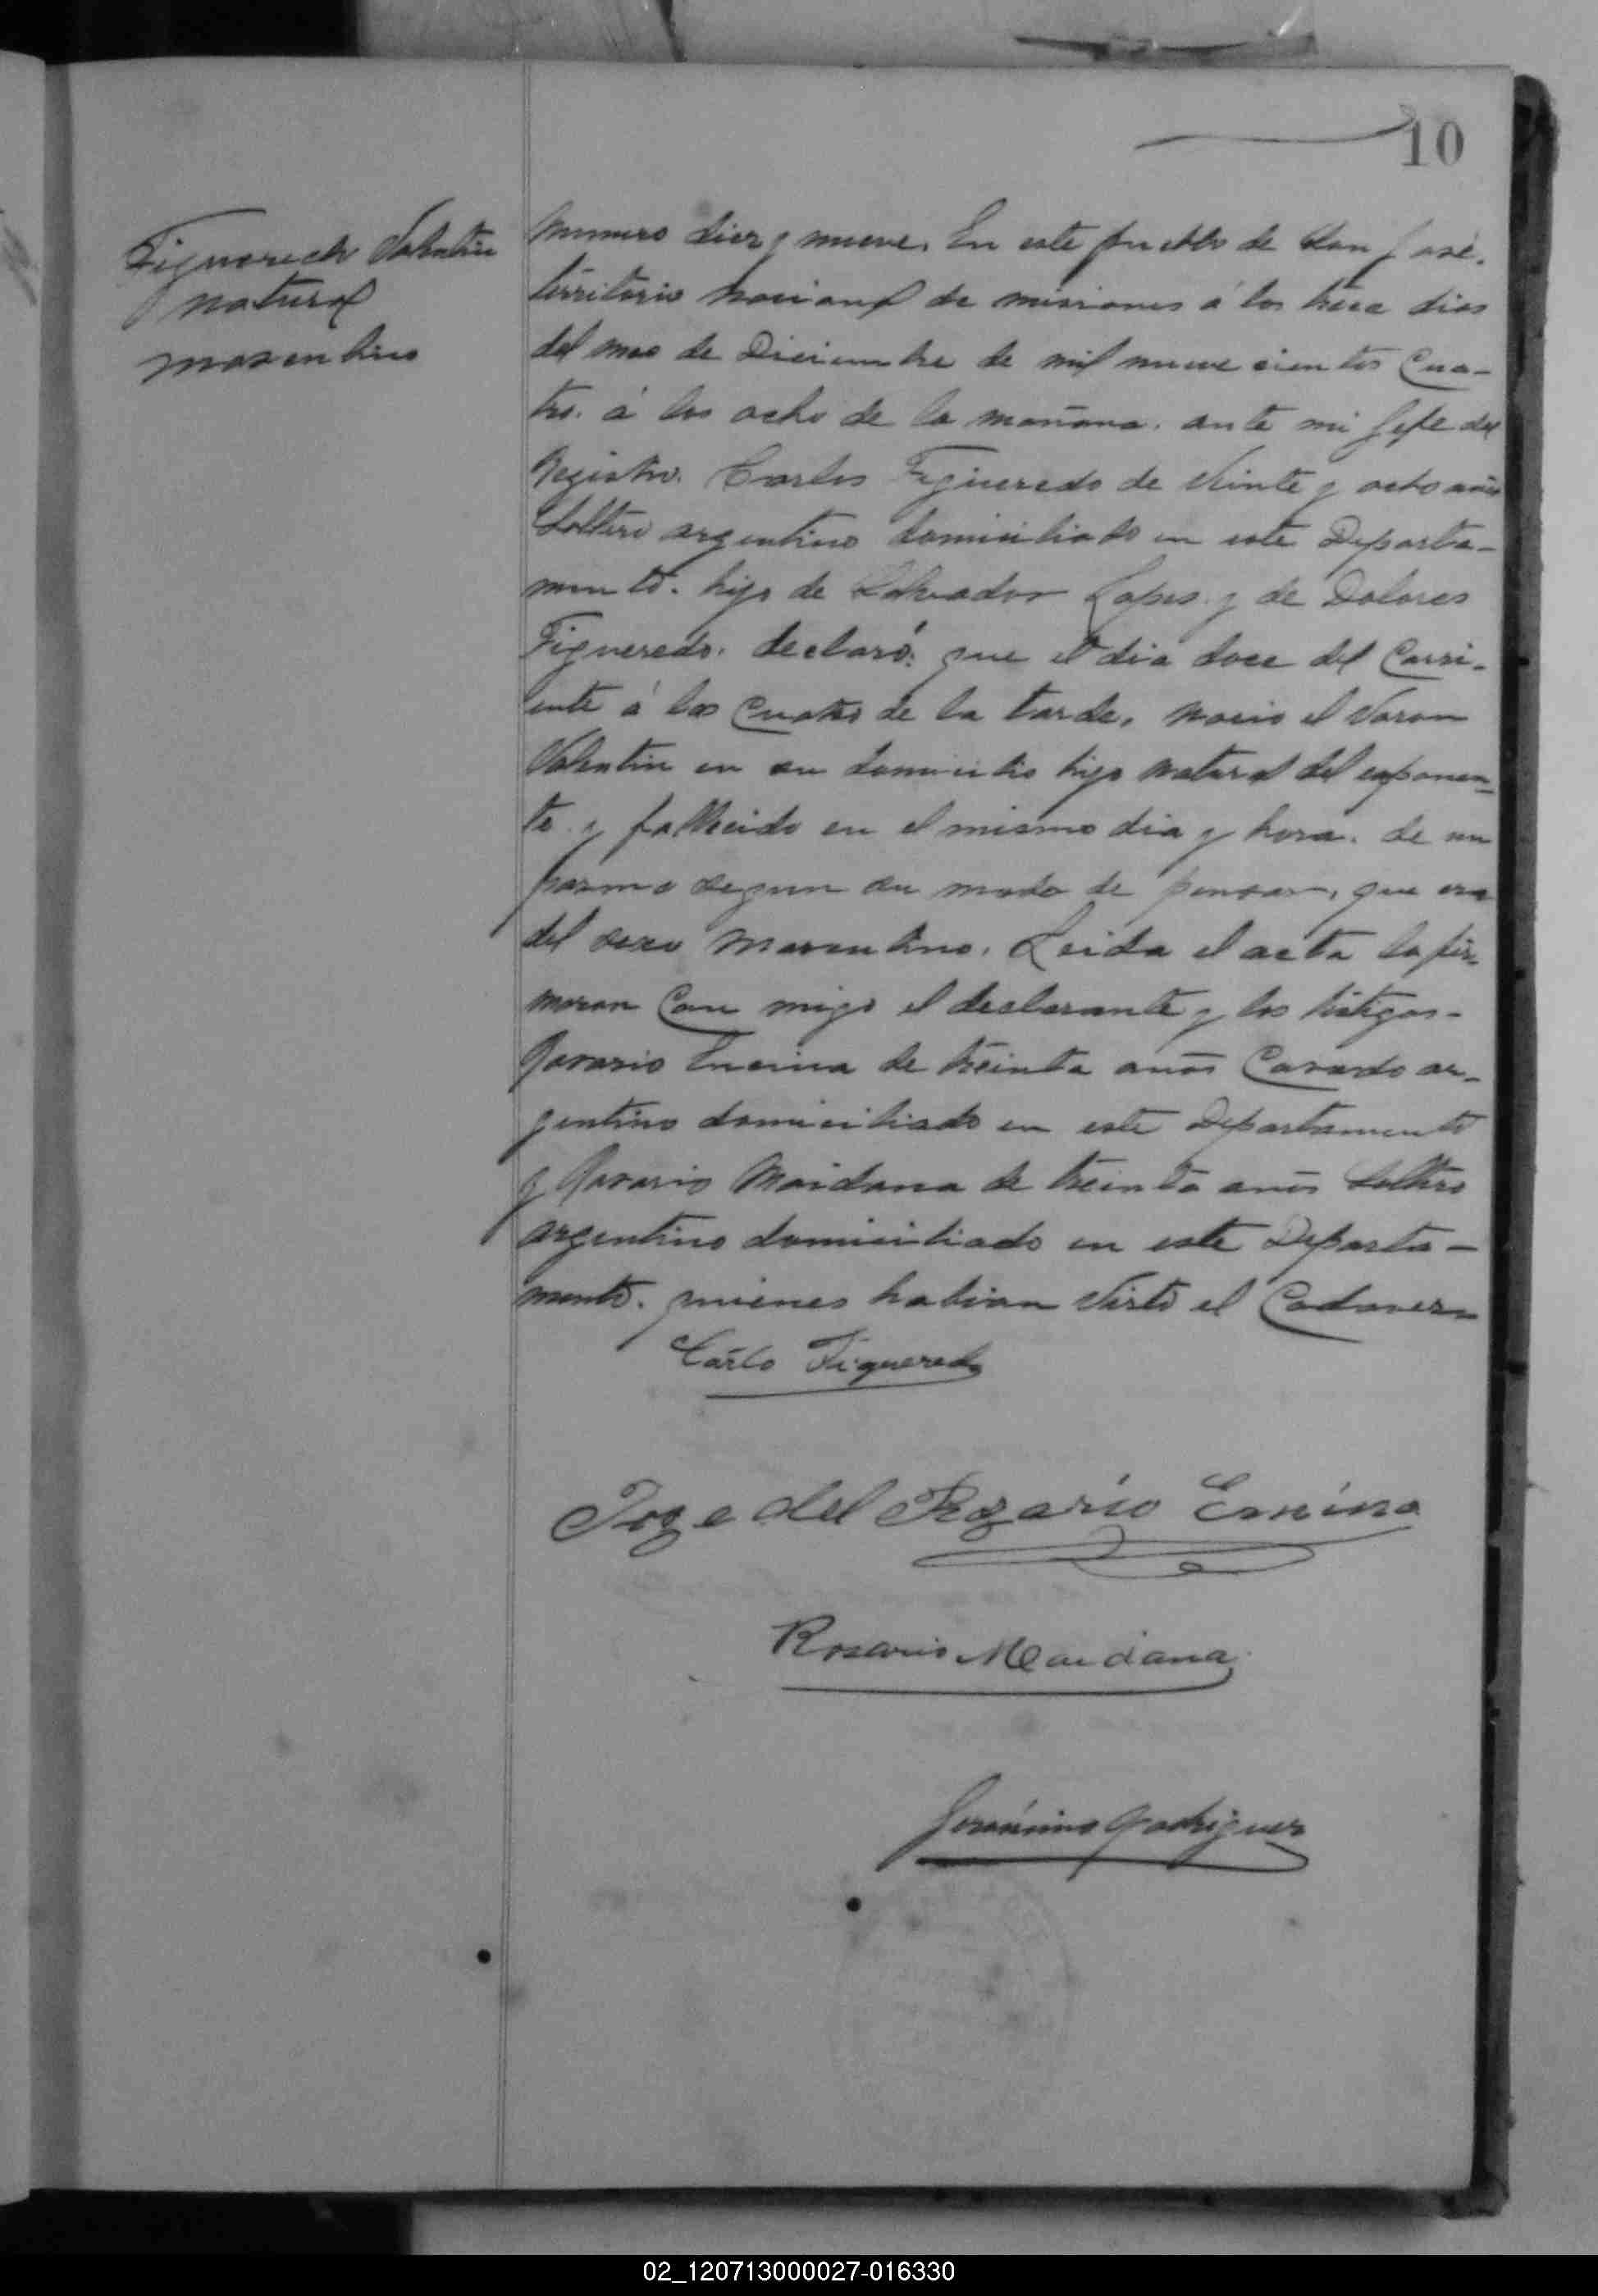 10
Figueredo Valentin
natural
masculino
Numero diez y nueve. En este pueblo de San José.
territorio nacional de misiones á los trece dias
del mes de Diciembre de mil nueve cientos Cua-
tro. á las ocho de la mañana. ante mi Jefe del
Registro. Carlos Figueredo de Veinte y ocho años
Soltero argentino domiciliado en este Departa-
mento. hijo de Salvador Lopes y de Dolores
Figueredo. declaró: que el dia doce del Corri-
ente á las Cuatro de la tarde, nacio el Varon
Valentin en su domicilio hijo natural del exponen-
te y fallecido en el mismo dia y hora. de un
pasmo segun su modo de pensar, que era
del sexo masculino. Leida el acta la fir-
maron Con migo el declarante y los testigos-
Rosario Encina de treinta años Casado ar-
gentino domiciliado en este Departamento
y Rosario Maidana de treinta años Soltero
argentino domiciliado en este Departa-
mento. quienes habian Visto el Cadaver
Carlo Figueredo
Joze del Rozario Ensina
Rosario Maidana
Gerónimo Rodriguez
02_120713000027-016330